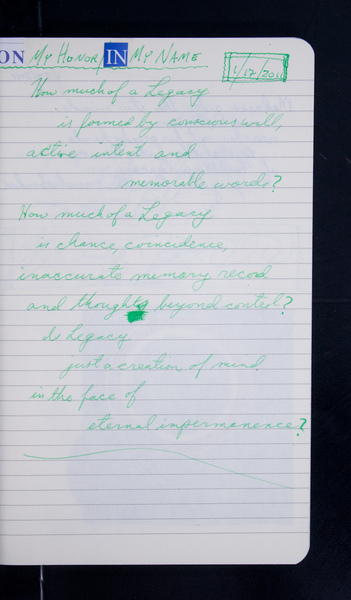 ON MY HONOR/IN MY NAME
1/17/2011
How much of a Legacy
is formed by conscious will,
active intent and
memorable words?
How much of a Legacy
is chance, coincidence,
inaccurate memory, record
and thoughts beyond control?
Is Legacy
just a creation of mind
in the face of
eternal impermanence?